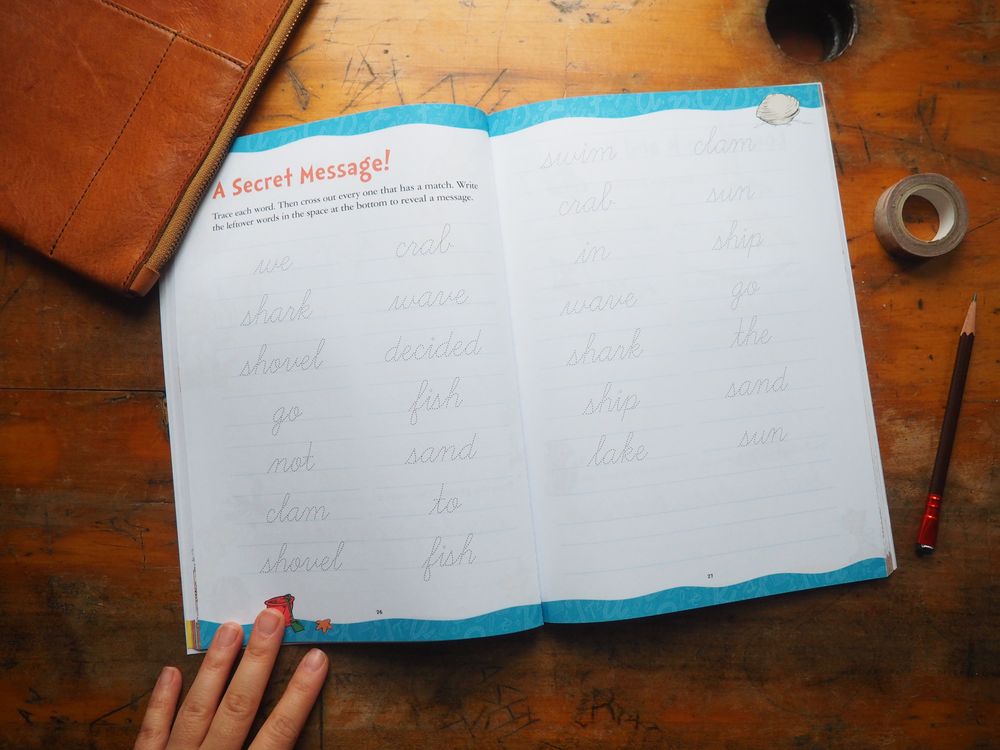 A Secret Message!
Trace each word. Then cross out every one that has a match. Write
the leftover words in the space at the bottom to reveal a message.
we crab
shark wave
shovel decided
go fish
not sand
clam to
shovel fish
26
swim clam
crab sun
in ship
wave go
shark the
ship sand
lake sun
27